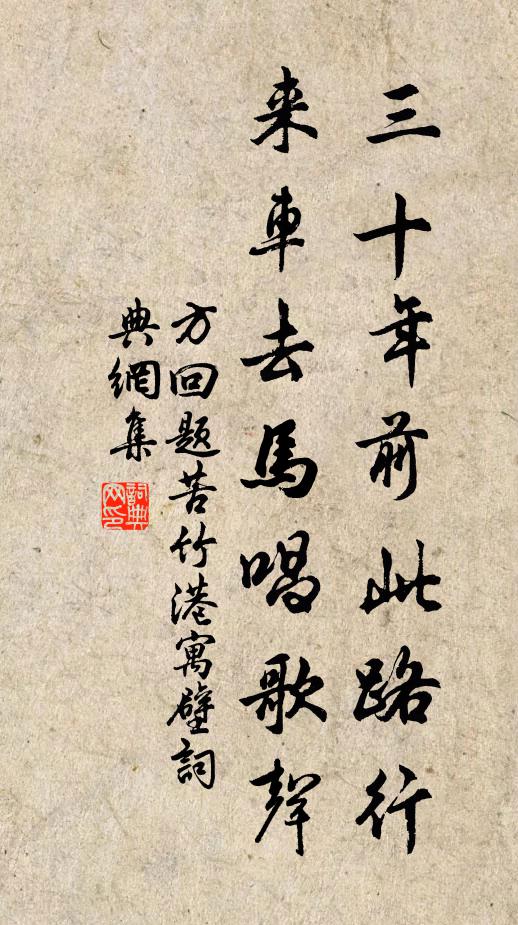 三十年前此路行
来車去馬唱歌聲
方回題苦竹港寓壁詞
典網集
詞典网印